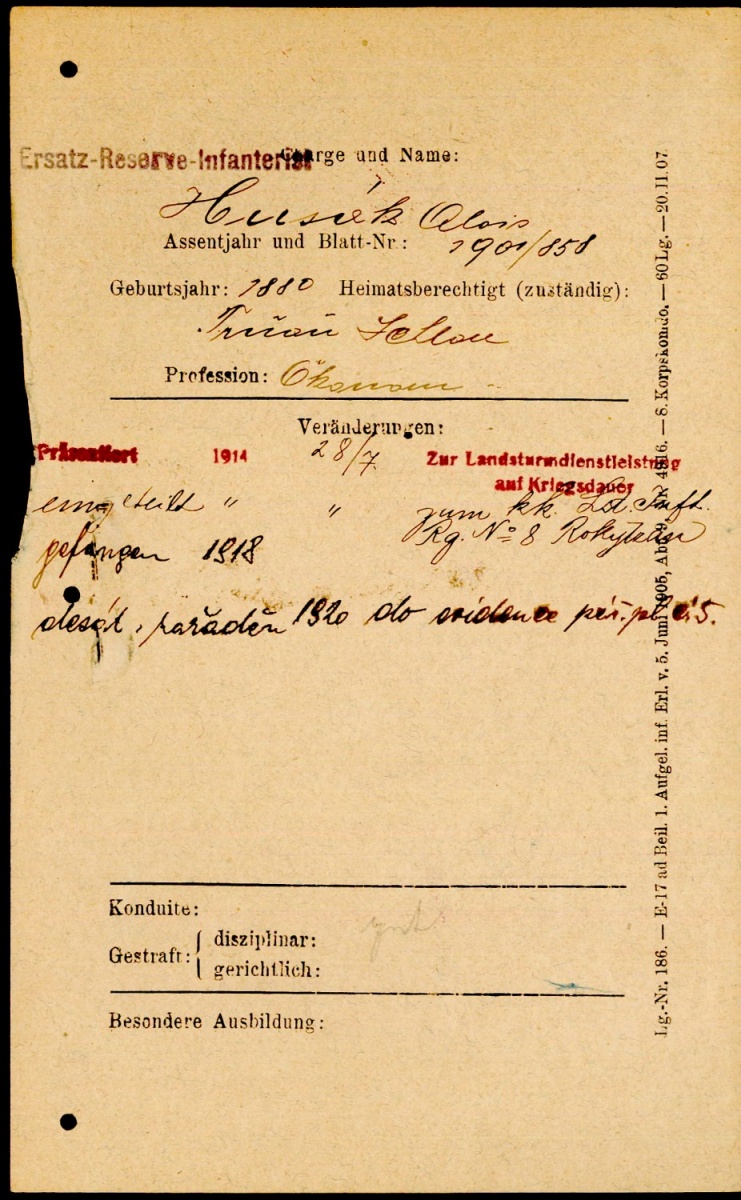 Ersatz-Reserve-Infanterist Charge und Name:
Husák Alois
Assentjahr und Blatt-Nr.: 1901/858
Geburtsjahr: 1880 Heimatsberechtigt (zuständig):
Profession: Ökonom
Veränderungen:
Präsentiert 1914 28/7 Zur Landsturmdienstleistung
auf Kriegsdauer
eingeteilt " " zum kk. Ldst. Inft.
Rg. No 8 Rokytzan
gefangen 1918
desát. zařaděn 1920 do evidence pěš. pl. č. 5.
Konduite: gut
Gestraft: disziplinar:
gerichtlich:
Besondere Ausbildung:
Lg.-Nr. 186. — E-17 ad Beil. 1. Aufgel. inf. Erl. v. 5. Juni 1905, Abt. — 8. Korpskomdo. — 60 Lg. — 20.11.07